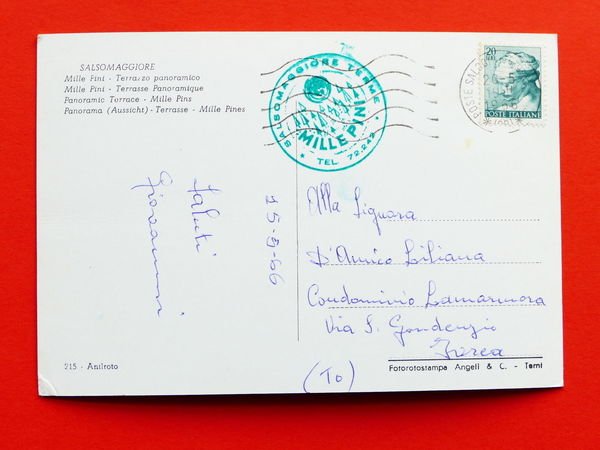 SALSOMAGGIORE
Mille Pini - Terrazzo panoramico
Mille Pini - Terrasse Panoramique
Panoramic Terrace - Mille Pins
Panorama (Aussicht) - Terrasse - Mille Pines
SALSOMAGGIORE TERME
MILLE PINI
TEL. 72.242
20
POSTE ITALIANE
POSTE SALSO
Saluti
15-8-66
Alla Signora
D'Amico Liliana
Condominio Lamarmora
Via S. Gaudenzio
Ivrea
(To)
215 - Antiroto
Fotorotostampa Angeli & C. - Terni